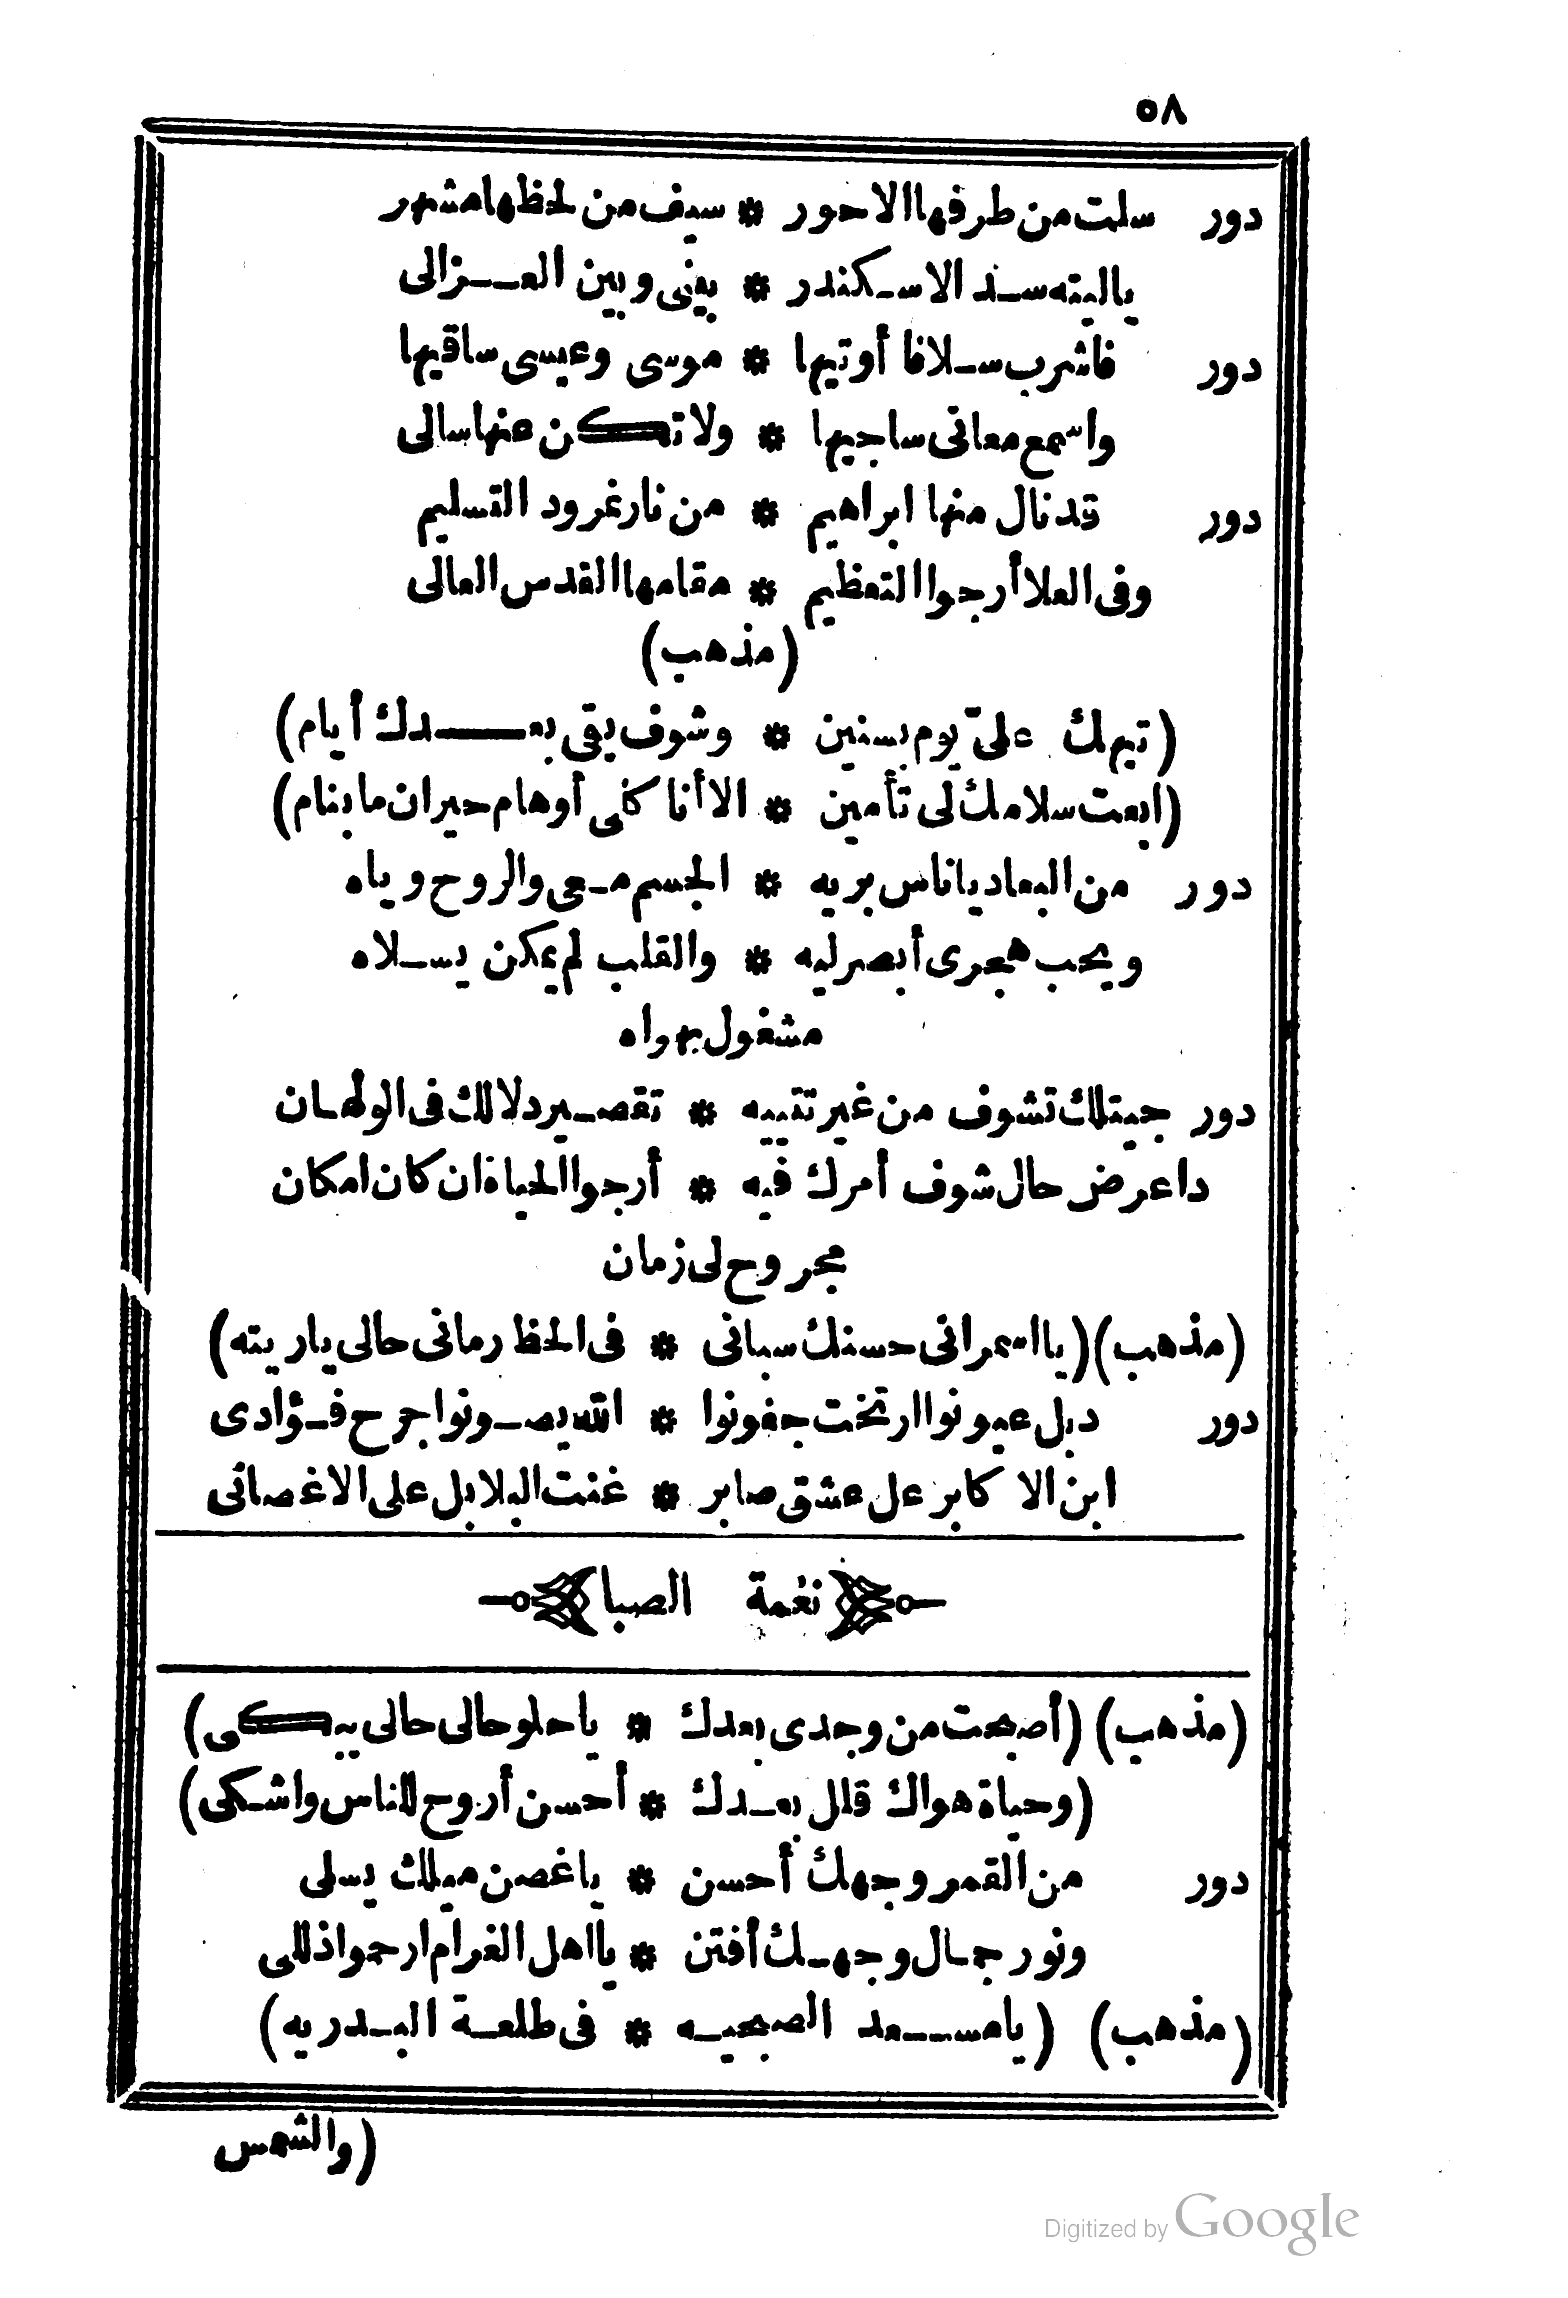 ٥٨
دور سلت من طرفها الاحور * سيف من لحظها مشهر
ياليته سد الاسكندر * بينى وبين العزالى
دور فاشرب سلافا أوتيها * موسى وعيسى ساقيها
واسمع معانى ساجيها * ولا تكن عنها سالى
دور قد نال منها ابراهيم * من نار نمرود التسليم
وفى العلا أرجوا التعظيم * مقامها القدس العالى
(مذهب)
(تيهك علىّ يوم بسنين * وشوف بقى بعدك أيام)
(ابعت سلامك لى تأمين * الا أنا كنى أوهام حيران ما بنام)
دور من البعاد ياناس بريه * الجسم معى والروح وياه
ويحب هجرى أبصر ليه * والقلب لم يمكن يسلاه
مشغول بهواه
دور جيتلك تشوف من غير تتييه * تقصير دلالك فى الولهان
دا عرض حال شوف أمرك فيه * أرجوا الحياة ان كان امكان
مجروح لى زمان
(مذهب) (يا اسمرانى حسنك سبانى * فى الحظ رمانى حالى ياريته)
دور دبل عيونوا ارتخت جفونوا * الله يصونوا جرح فؤادى
ابن الا كابر عل عشق صابر * غنت البلابل على الاغصانى
نغمة الصبا
(مذهب) (أصبحت من وجدى بعدك * ياحلو حالى حالى يبكى)
(وحياة هواك قال بعدك * أحسن أروح للناس واشكى)
دور من القمر وجهك أحسن * ياغصن ميلك يسلى
ونور جمال وجهك أفتن * يا اهل الغرام ارحموا ذللى
(مذهب) (يامسعد الصبحيه * فى طلعة البدريه)
(والشمس
Digitized by Google